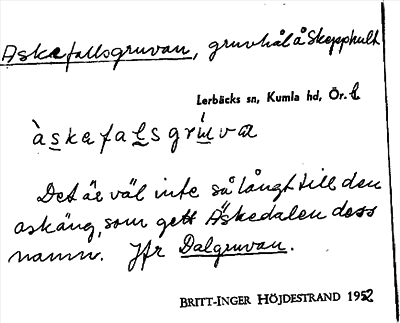 Askefallsgruvan, gruvhål å Skepphult
Lerbäcks sn, Kumla hd, Ör. l
àskafaḻsgrúva
Det är väl inte så långt till den
askäng, som gett Äskedalen dess
namn. Jfr Dalgruvan.
BRITT-INGER HÖJDESTRAND 1952